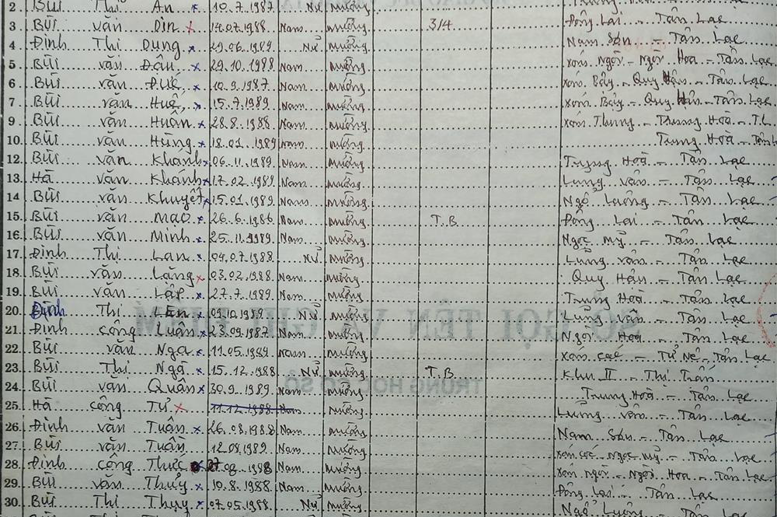 2 Bùi Thị An x 10.7.1987 Nữ Mường
3 Bùi văn Din x 14.07.1988 Nam Mường 3/4 Đông Lai - Tân Lạc
4 Đinh Thị Dung x 29.06.1989 Nữ Mường Nam Sơn - Tân Lạc
5 Bùi văn Đậu x 29.10.1988 Nam Mường xóm Ngòi - Ngòi Hoa - Tân Lạc
6 Bùi văn Đức x 10.9.1987 Nam Mường xóm Bậy - Quy Hậu - Tân Lạc
7 Bùi văn Huệ x 15.7.1989 Nam Mường xóm Bậy - Quy Hậu - Tân Lạc
9 Bùi văn Huân x 28.8.1988 Nam Mường xóm Thung - Trung Hoà - T.L
10. Bùi văn Hùng x 18.01.1989 Nam Mường Trung Hoà - Tân
12 Bùi văn Khánh x 06.11.1989 Nam Mường Trung Hoà - Tân Lạc
13 Hà văn Khánh x 17.02.1989 Nam Mường Lũng vân - Tân Lạc
14 Bùi văn Khuyết x 15.01.1989 Nam Mường Ngổ Luông - Tân Lạc
15 Bùi văn Mạo x 26.6.1986 Nam Mường T.B Đông Lai - Tân Lạc
16 Bùi văn Minh x 25.11.1989 Nam Mường Ngọc Mỹ - Tân Lạc
17 Đinh Thị Lan x 04.07.1988 Nữ Mường Lũng vân - Tân Lạc
18 Bùi văn Lặng x 03.02.1988 Nam Mường Quy Hậu - Tân Lạc
19 Bùi văn Lập x 27.7.1989 Nam Mường Trung Hoà - Tân Lạc
20 Đinh Thị Lên x 09.10.1989 Nữ Mường Lũng vân - Tân Lạc
21 Đinh công Luân x 23.09.1987 Nam Mường Ngòi Hoa - Tân Lạc
22 Bùi văn Nga x 11.05.1989 Nam Mường xóm - Tử Nê - Tân Lạc
23 Bùi Thị Ngà x 15.12.1988 Nữ Mường T.B Khu II - Thị Trấn
24 Bùi văn Quân x 30.9.1989 Nam Mường Trung Hoà - Tân Lạc
25 Hà công Tư x 11.12.1988 Nam Mường Lũng vân - Tân Lạc
26 Đinh văn Tuân x 26.08.1988 Nam Mường Nam Sơn - Tân Lạc
27 Bùi văn Tuấn 12.08.1989 Nam Mường Ngọc Mỹ - Tân Lạc
28 Đinh công Thức 27.08.1988 Nam Mường xóm Ngòi - Ngòi Hoa - Tân Lạc
29 Bùi văn Thuỷ x 10.8.1988 Nam Mường Đông Lai - Tân Lạc
30. Bùi Thị Thuỷ x 07.05.1988 Nữ Mường Ngổ Luông - Tân Lạc